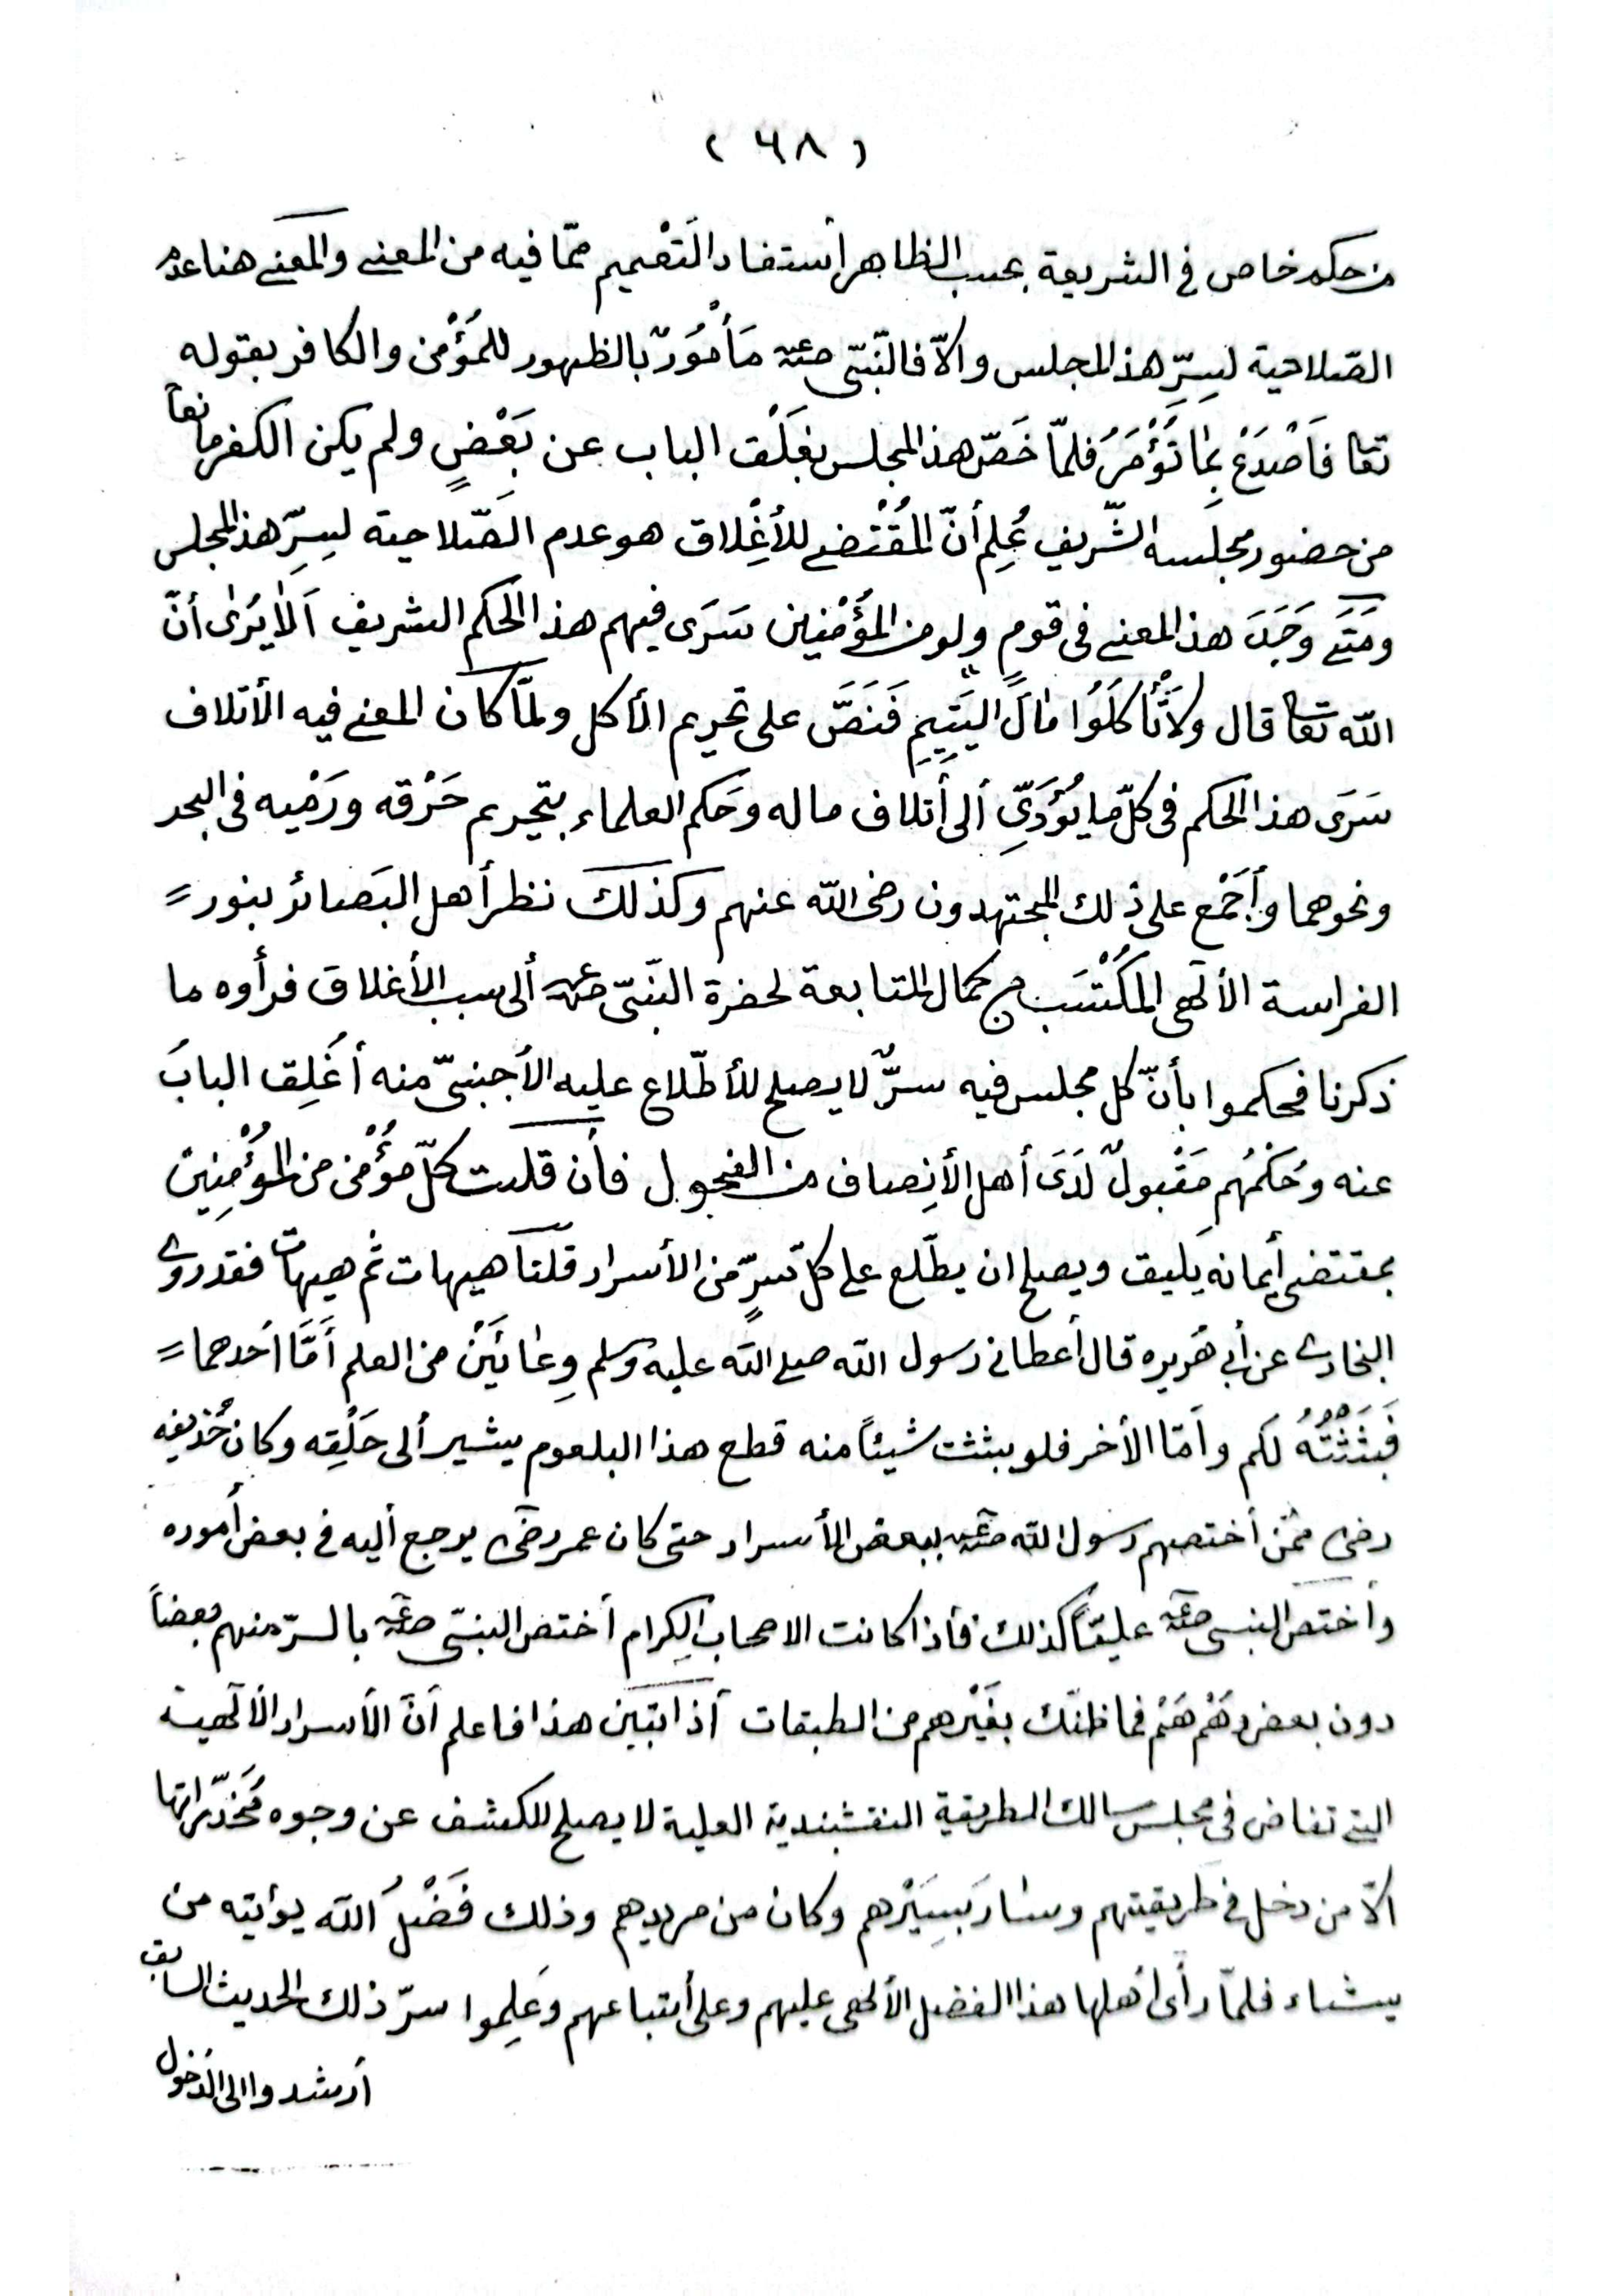 ( ٦٨ )
من حكم خاص في الشريعة بحسب الظاهر أستفاد التَعْميم ممّا فيه من المعنى والمعنى هنا عدم
الصّلاحية لسِرِّ هذا المجلس والاّ فالنّبيّ صعم مَأمُورٌ بالظهور للمُؤْمن والكافر بقوله
تعا فَاَصْدَعْ بِمٰا تُؤْمَرُ فلمّا خَصّ هذا المجلس بغَلْق الباب عن بَعْضٍ ولم يكن الكفر مانعاً
من حضور مجلسه الشّريف عُلِم أنّ المُقْتضى للأغِلاق هو عدم الصّلاحية لسِرِّ هذا المجلس
ومَتَى وَجَدَ هذا المعنى في قومٍ ولو من المؤْمنِين سَرَى فيهم هذا الحكم الشريف اَلاٰ يُرَىٰ أنّ
الله تعا قال ولاَ تْأكُلُوا مٰالَ اليَتِيِمِ فَنَصَّ على تحريم الأكل ولمّا كان المعنى فيه الأتلاف
سَرَى هذا الحكم في كلّ ما يُؤَدّيِ ألى أَتلاف ماله وحَكم العلماء بتحريم حَرْقه ورَمْيه في البحر
ونحوهما وأجَمْع على ذلك المجتهدون رضى الله عنهم وكذلك نظر أهل البَصائر بنور =
الفراسة الألهى المكُتْسَب من كمال المتابعة لحضرة النّبيّ صعم ألى سبب الأغلاق فرأوه ما
ذكرنا فحكموا بأنّ كل مجلس فيه سرٌّ لا يصلح للأطّلاع عليه الأجنبىّ منه أغَلِق البابُ
عنه وحُكْمُهُم مَقْبولٌ لَدَى أهل الأنِصاف من الفحول فأن قلت كلّ مؤْمن من المؤْمِنِين
بمقتضى أيمانه يليق ويصلح ان يطّلع على كلّ سِرٍّ من الأسرار قلنا هيهات ثم هيهات فقد روى
البخارى عن أبى هُريره قال أعطانى رسول الله صلى الله عليه وسلم وِعٰائَيَنْ من العلم أمَّا أحدهما =
فَبَثَثْتُهُ لكم وأمّا الأخر فلو بثثت شيئاً منه قطع هذا البلعوم يشير ألى حَلْقِه وكان حُذيفه
رضى ممّن أختصهم رسول الله صعم ببعض الأسرار حتى كان عمر رضى يرجع أليه في بعض أموره
وأختص النبى صعم عليّاً كذلك فأذا كانت الاصحاب الكِرام أختص النبىّ صعم بالسرّ منهم بعضاً
دون بعض وهُمْ هُمْ فما ظنّك بغَيْرهم من الطبقات أذا تبين هذا فاعلم أنَّ الأسرار الألهية
التى تفاض في مجلس سالك الطريقة النقشبندية العلية لا يصلح للكشف عن وجوه مُخدّراتها
الاّ من دخل في طريقتهم وسٰار بَسِيَرْهم وكان من مريدهم وذلك فَضْلُ الله يؤتيه من
يشاء فلمّا رأى أهلها هذا الفضل الألهى عليهم وعلى أتباعهم وعَلِموا سرّ ذلك الحديث السابق
أرشدوا الى الدّخول